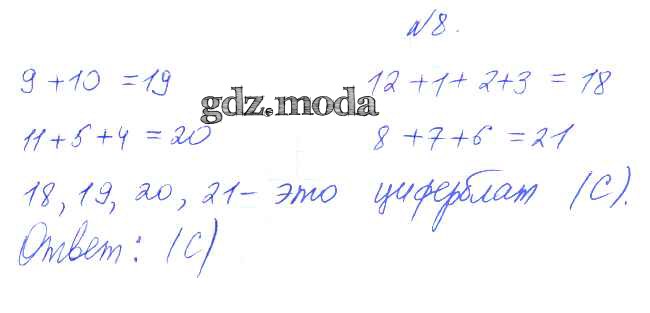 №8.
9+10 =19 12+1+2+3 = 18
gdz.moda
11+5+4=20 8+7+6 =21
18, 19, 20, 21- это циферблат (С).
Ответ: (С)